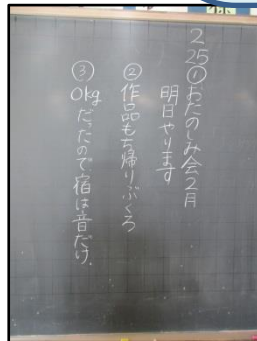 2
25①おたのしみ会2月
明日やります
②作品もち帰りぶくろ
③0kgだったので宿は音だけ.